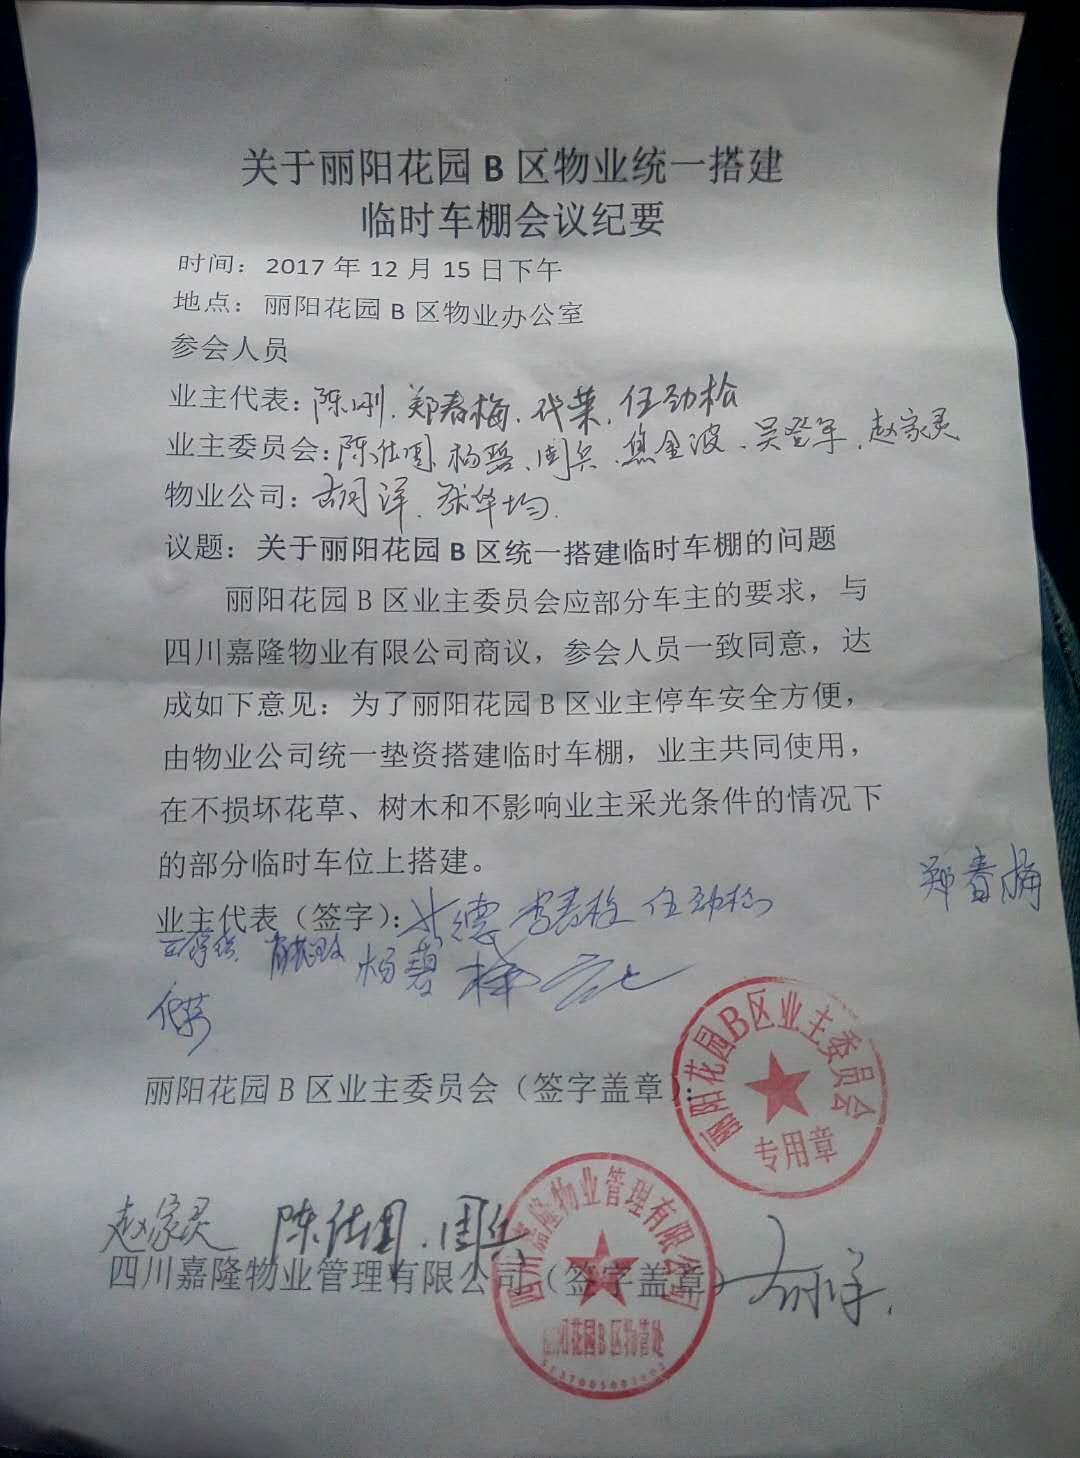 关于丽阳花园 B 区物业统一搭建
临时车棚会议纪要
时间：2017 年 12 月 15 日下午
地点：丽阳花园 B 区物业办公室
参会人员
业主代表：陈刚、郑春梅、代荣、任劲松
业主委员会：陈仕国、杨碧、周兵、焦金波、吴登军、赵家灵
物业公司：胡洋、张华均
议题：关于丽阳花园 B 区统一搭建临时车棚的问题
丽阳花园 B 区业主委员会应部分车主的要求，与
四川嘉隆物业有限公司商议，参会人员一致同意，达
成如下意见：为了丽阳花园 B 区业主停车安全方便，
由物业公司统一垫资搭建临时车棚，业主共同使用，
在不损坏花草、树木和不影响业主采光条件的情况下
的部分临时车位上搭建。
郑春梅
业主代表（签字）：任劲松
杨碧
代荣
丽阳花园 B 区业主委员会（签字盖章）：
丽阳花园B区业主委员会
专用章
赵家灵 陈仕国、周兵
四川嘉隆物业管理有限公司（签字盖章）
四川嘉隆物业管理有限公司
丽阳花园B区物管处